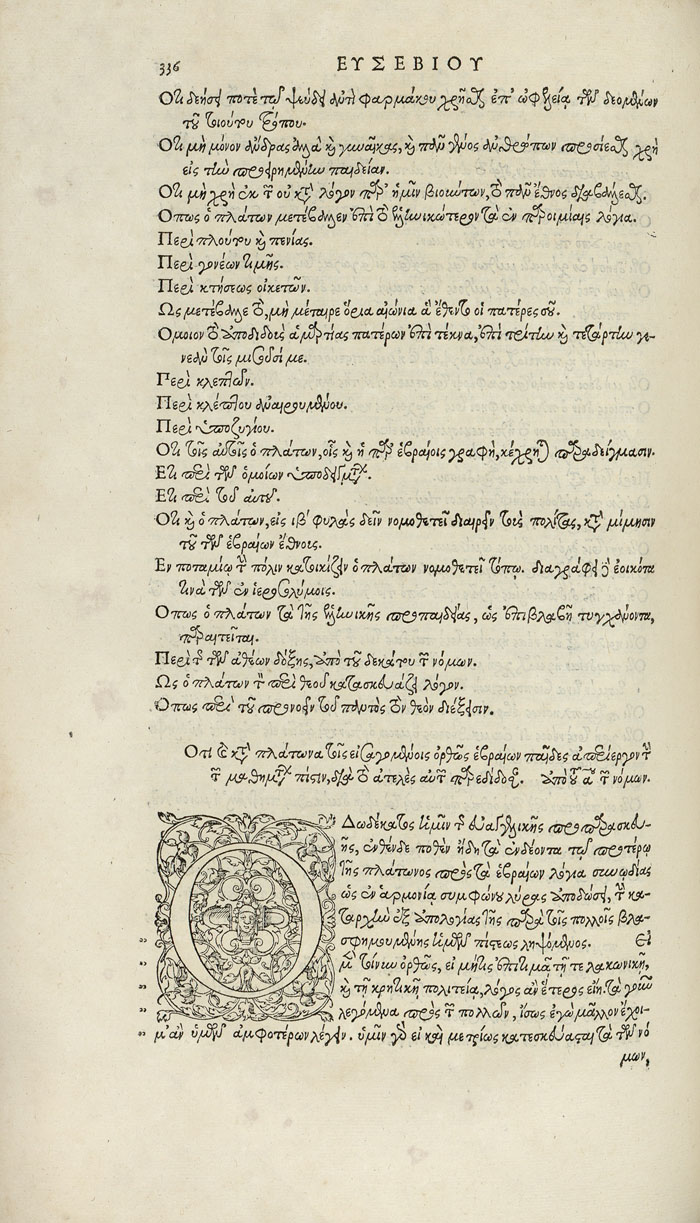 336
ΕΥΣΕΒΙΟΥ
Οτι δεήσει ποτὲ τῷ ψεύδει ἀντὶ φαρμάκου χρῆσθαι ἐπ' ὠφελείᾳ τῶν δεομένων
τοῦ τοιούτου τρόπου.
Οτι μὴ μόνον ἄνδρας ἀλλὰ καὶ γυναῖκας, καὶ πᾶν γένος ἀνθρώπων προσίεσθαι χρὴ
εἰς τὴν προειρημένην παιδείαν.
Οτι μὴ χρὴ ἐκ τῶν οὐ κατὰ λόγον παρ' ἡμῖν βιούντων, τὸ πᾶν ἔθνος διαβάλλεσθαι.
Οπως ὁ πλάτων μετέβαλλεν ἐπὶ τὸ ἑλληνικώτερον τὰ ἐν παροιμίαις λόγια.
Περὶ πλούτου καὶ πενίας.
Περὶ γονέων τιμῆς.
Περὶ κτήσεως οἰκετῶν.
Ως μετέβαλλε τὸ, μὴ μέταιρε ὅρια αἰώνια ἃ ἔθεντο οἱ πατέρες σου.
Ομοιον τὸ ἀποδιδοὺς ἁμαρτίας πατέρων ἐπὶ τέκνα, ἐπὶ τρίτην καὶ τετάρτην γε-
νεὰν τοῖς μισοῦσί με.
Περὶ κλεπτῶν.
Περὶ κλέπτου ἀναιρουμένου.
Περὶ ὑποζυγίου.
Οτι τοῖς αὐτοῖς ὁ πλάτων, οἷς καὶ ἡ παρ' ἑβραίοις γραφὴ, κέχρηται παραδείγμασιν.
Ετι περὶ τῶν ὁμοίων ὑποδείγματα.
Ετι περὶ τοῦ αὐτοῦ.
Οτι καὶ ὁ πλάτων, εἰς ιβ' φυλὰς δεῖν νομοθετεῖ διαιρεῖν τοὺς πολίτας, κατὰ μίμησιν
τοῦ τῶν ἑβραίων ἔθνοις.
Εν ποταμίῳ τὴν πόλιν κατοικίζειν ὁ πλάτων νομοθετεῖ τόπῳ. διαγράφει δὲ ἐοικότα
τινὰ τῶν ἐν ἱεροσολύμοις.
Οπως ὁ πλάτων τὰ τῆς ἑλληνικῆς προπαιδείας, ὡς ἐπιβλαβῆ τυγχάνοντα,
παραιτεῖται.
Περὶ τῆς τῶν ἀθέων δόξης, ἀπὸ τοῦ δεκάτου τῶν νόμων.
Ως ὁ πλάτων τὸν περὶ θεοῦ κατασκευάζει λόγον.
Οπως περὶ τοῦ προνοεῖν τοῦ παντὸς τὸν θεὸν διέξεισιν.
Οτι καὶ κατὰ πλάτωνα τοῖς εἰσαγομένοις ὀρθῶς ἑβραίων παῖδες ἀπλουστέραν τὴν
τῶν μαθημάτων πίστιν, διὰ τὸ ἀτελὲς αὐτῶν παρεδίδοσαν. Ἀπὸ τοῦ α' τῶν νόμων.
Ο Δωδέκατος ἡμῖν τῆς εὐαγγελικῆς προπαρασκευ-
ῆς, ἐνθένδε ποθὲν ἤδη τὰ ἐνδέοντα τῷ προτέρῳ
τῆς πλάτωνος πρὸς τὰ ἑβραίων λόγια συνῳδίας
ὡς ἐν ἁρμονίᾳ συμφώνου λύρας ἀποδώσει, τὴν κα-
ταρχὴν ἐξ ἀπολογίας τῆς παρὰ τοῖς πολλοῖς βλα-
σφημουμένης ἡμῶν πίστεως ληψόμενος. Εἰ
μὲν τοίνυν ὀρθῶς, εἰ μή τις ἐπιτιμᾷ τῇ τε λακωνικῇ,
καὶ τῇ κρητικῇ πολιτείᾳ, λόγος ἂν ἕτερος εἴη. τὰ γοῦν
λεγόμενα πρὸς τῶν πολλῶν, ἴσως ἐγὼ μᾶλλον ἔχοι-
μ' ἂν ὑμῶν ἀμφοτέρων λέγειν. ὑμῖν γὰρ εἰ καὶ μετρίως κατεσκεύασται τὰ τῶν νό
μων,